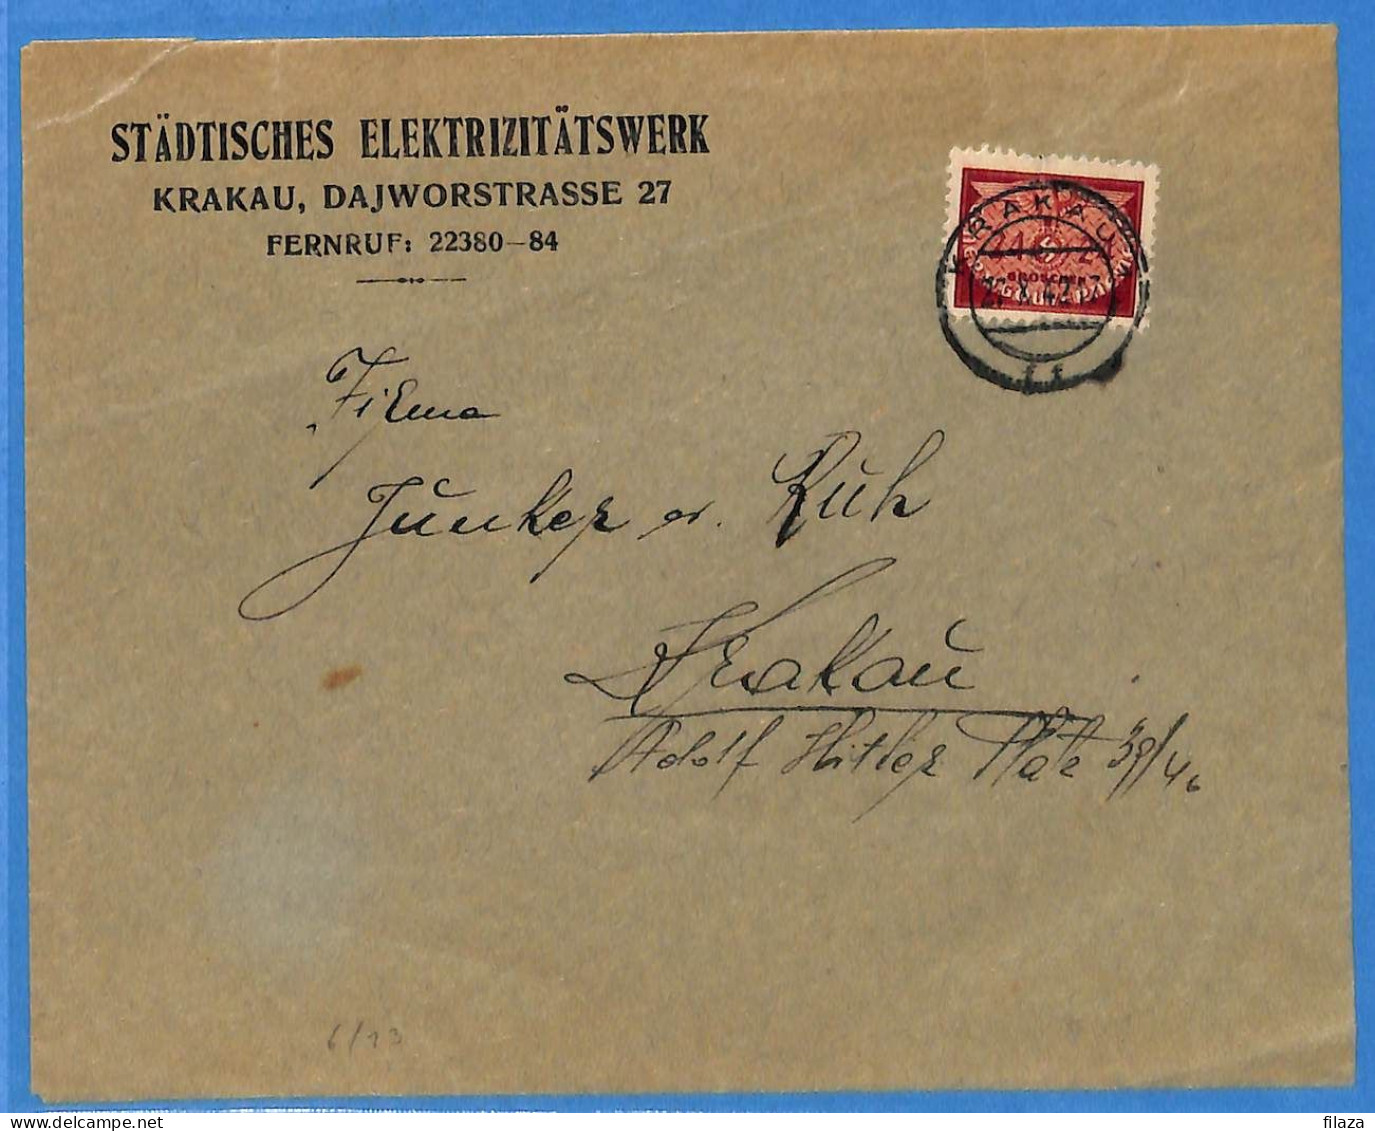 STÄDTISCHES ELEKTRIZITÄTSWERK
KRAKAU, DAJWORSTRASSE 27
FERNRUF: 22380-84
KRAKAU
24 24
GROSCHEN
X 42
Firma
Junker u. Ruh
Krakau
Adolf Hitler Platz
6/13
filaza